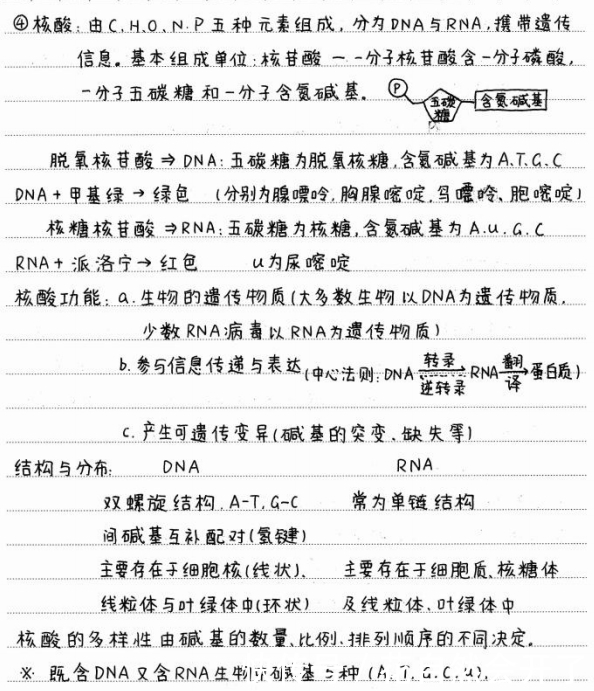 ④核酸:由C.H.O、N.P五种元素组成,分为DNA与RNA,携带遗传
信息。基本组成单位:核苷酸——分子核苷酸含一分子磷酸,
一分子五碳糖和一分子含氮碱基.
P 五碳糖 含氮碱基
脱氧核苷酸⇒DNA:五碳糖为脱氧核糖,含氮碱基为A.T.G.C
DNA+甲基绿→绿色 (分别为腺嘌呤,胸腺嘧啶,鸟嘌呤、胞嘧啶)
核糖核苷酸⇒RNA:五碳糖为核糖,含氮碱基为A.u.G.C
RNA+派洛宁→红色 u为尿嘧啶
核酸功能:a.生物的遗传物质(大多数生物以DNA为遗传物质,
少数RNA病毒以RNA为遗传物质)
b.参与信息传递与表达(中心法则:DNA 转录 逆转录 RNA 翻译 蛋白质)
c.产生可遗传变异(碱基的突变、缺失等)
结构与分布: DNA RNA
双螺旋结构.A-T,G-C 常为单链结构
间碱基互补配对(氢键)
主要存在于细胞核(线状)、 主要存在于细胞质、核糖体
线粒体与叶绿体中(环状) 及线粒体、叶绿体中
核酸的多样性由碱基的数量、比例、排列顺序的不同决定。
※ 既含DNA又含RNA生物 碱基5种(A,T,G.C.u).